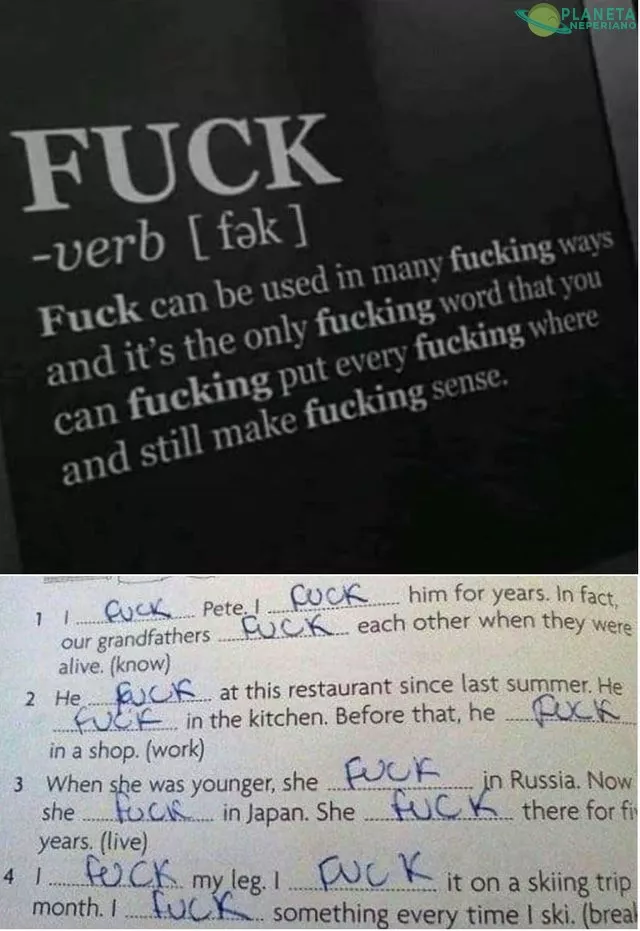 PLANETA
NEPERIANO
FUCK
-verb [fək]
Fuck can be used in many fucking ways
and it's the only fucking word that you
can fucking put every fucking where
and still make fucking sense.
1 I FUCK Pete. I FUCK him for years. In fact,
our grandfathers FUCK each other when they were
alive. (know)
2 He FUCK at this restaurant since last summer. He
FUCK in the kitchen. Before that, he FUCK
in a shop. (work)
3 When she was younger, she FUCK in Russia. Now
she FUCK in Japan. She FUCK there for fi
years. (live)
4 I FUCK my leg. I FUCK it on a skiing trip
month. I FUCK something every time I ski. (break